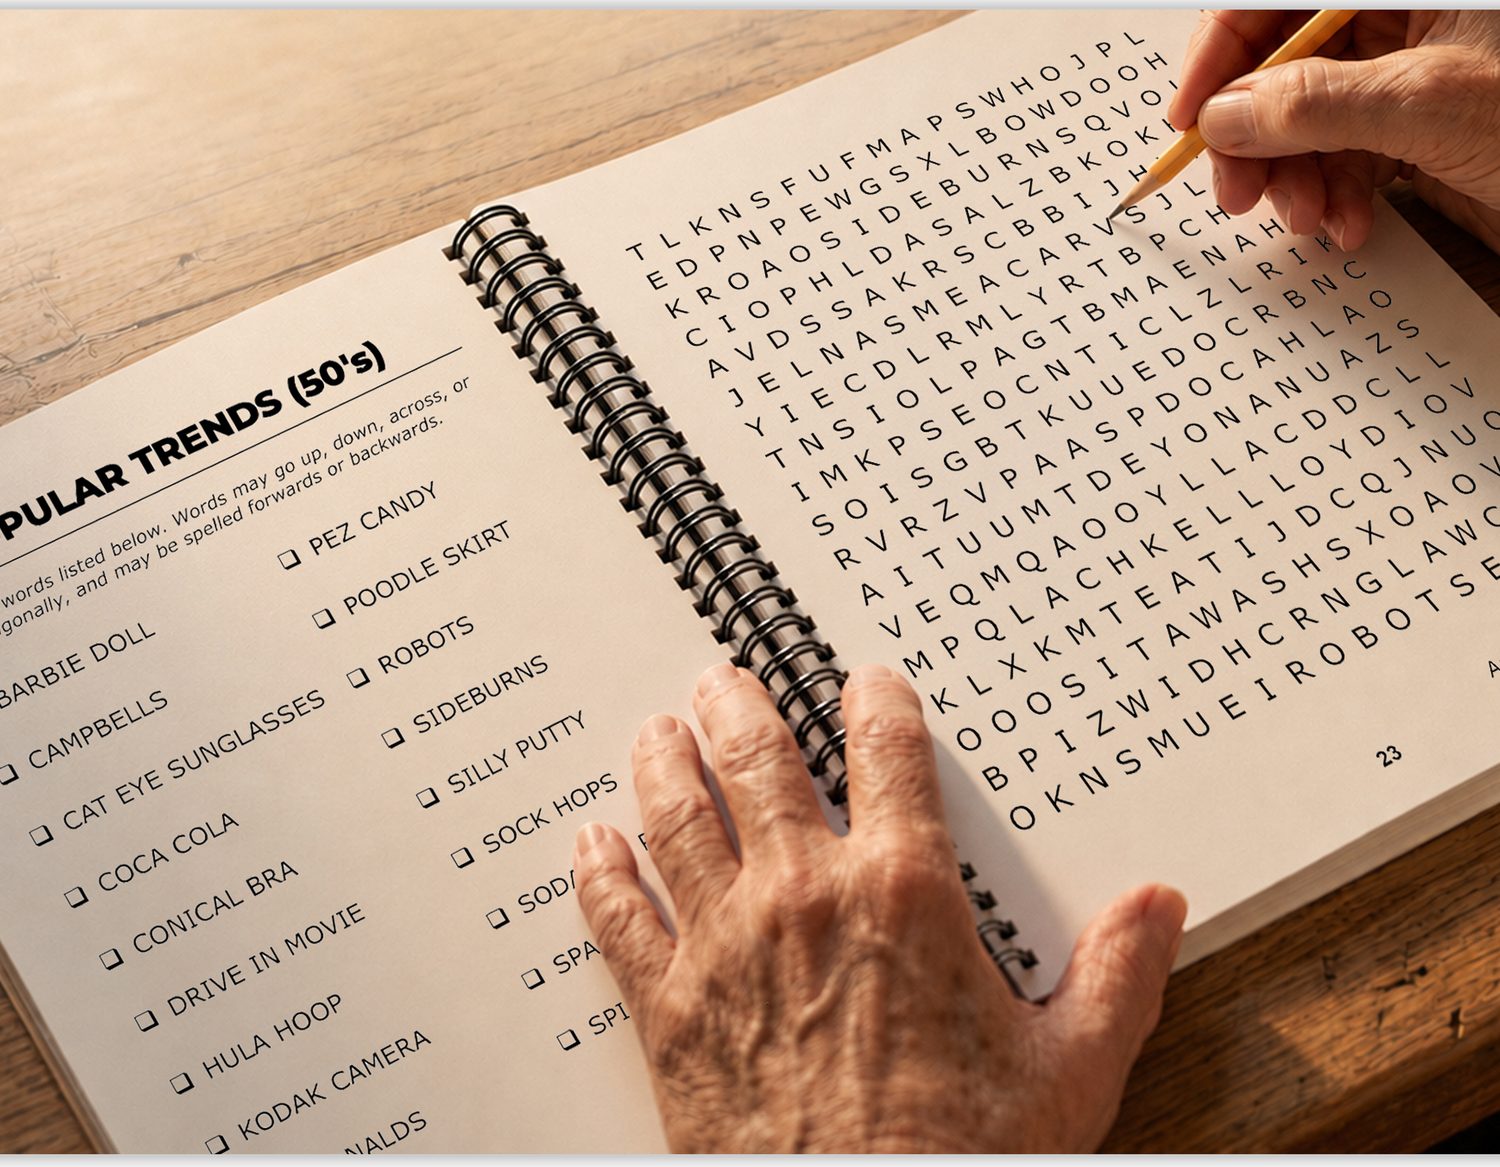 PULAR TRENDS (50's)
words listed below. Words may go up, down, across, or
gonally, and may be spelled forwards or backwards.
BARBIE DOLL
CAMPBELLS
CAT EYE SUNGLASSES
COCA COLA
CONICAL BRA
DRIVE IN MOVIE
HULA HOOP
KODAK CAMERA
NALDS
PEZ CANDY
POODLE SKIRT
ROBOTS
SIDEBURNS
SILLY PUTTY
SOCK HOPS
SODA
SPA
SPI
T L K N S F U F M A P S W H O J P L
E D P N P E W G S X L B O W D O O H
K R O A O S I D E B U R N S Q V O
C I O P H L D A S A L Z B K O K
A V D S S A K R S C B B I J H
J E L N A S M E A C A R V S J L
Y I E C D L R M L Y R T B P C H
T N S I O L P A G T B M A E N A H
I M K P S E O C N T I C L Z L R I K
S O I S G B T K U U E D O C R B N C
R V R Z V P A A S P D O C A H L A O
A I T U U M T D E Y O N A N U A Z S
V E Q M Q A O O Y L L A C D D C L L
M P Q L A C H K E L L L O Y D I O V
K L X K M T E A T I J D C Q J N U O
O O O S I T A W A S H S X O A O V
B P I Z W I D H C R N G L A W C
O K N S M U E I R O B O T S E
A
23